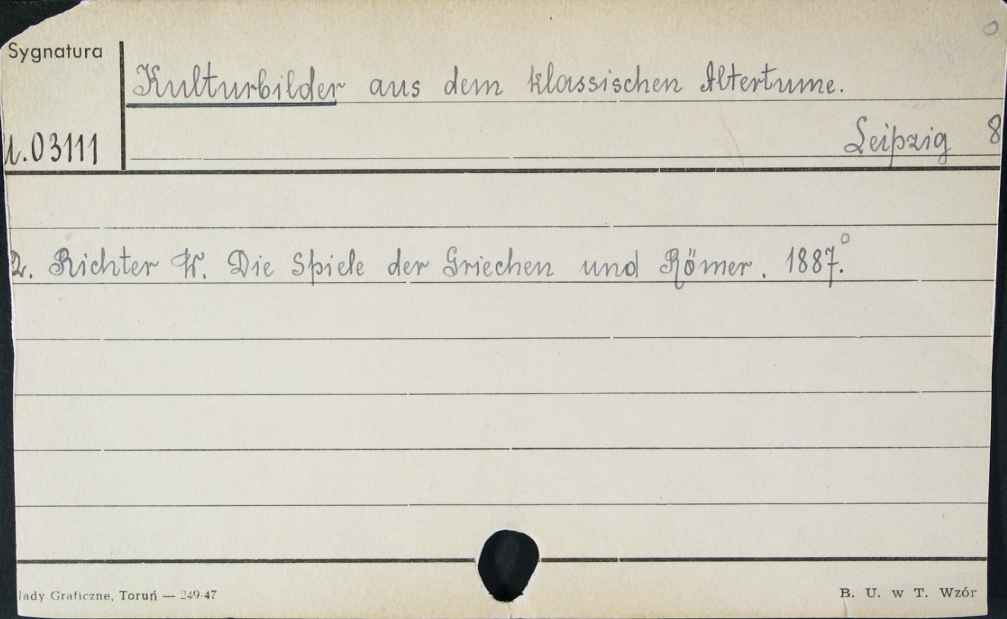 Sygnatura
Kulturbilder aus dem klassischen Altertume.
Leipzig 8
1.03111
2. Richter W. Die Spiele der Griechen und Römer. 1887.°
łady Graficzne, Toruń — 249-47
B. U. w T. Wzór